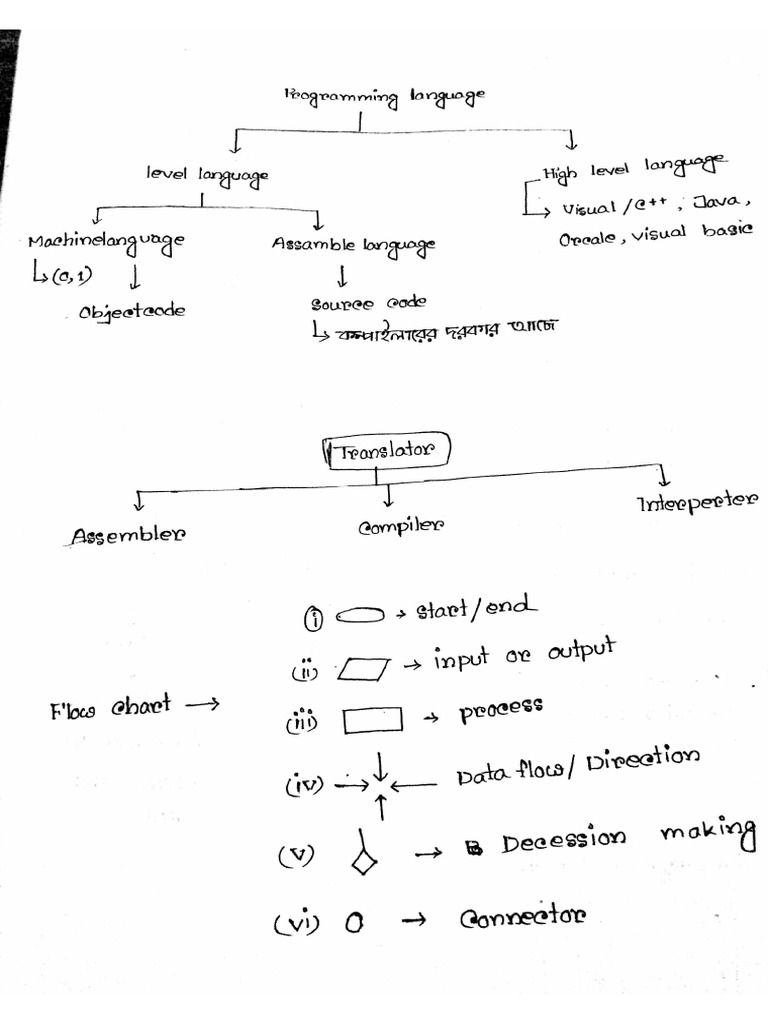 Programming language
level language
High level language
Visual/C++, Java,
Orcale, visual basic
Machinelanguage
Assamble language
(0,1)
Objectcode
Source code
কম্পাইলারের দরকার আছে
Translator
Assembler
Compiler
Interperter
Flow chart →
(i) → start/end
(ii) → input or output
(iii) → process
(iv) Data flow/Direction
(v) → Decession making
(vi) → Connector